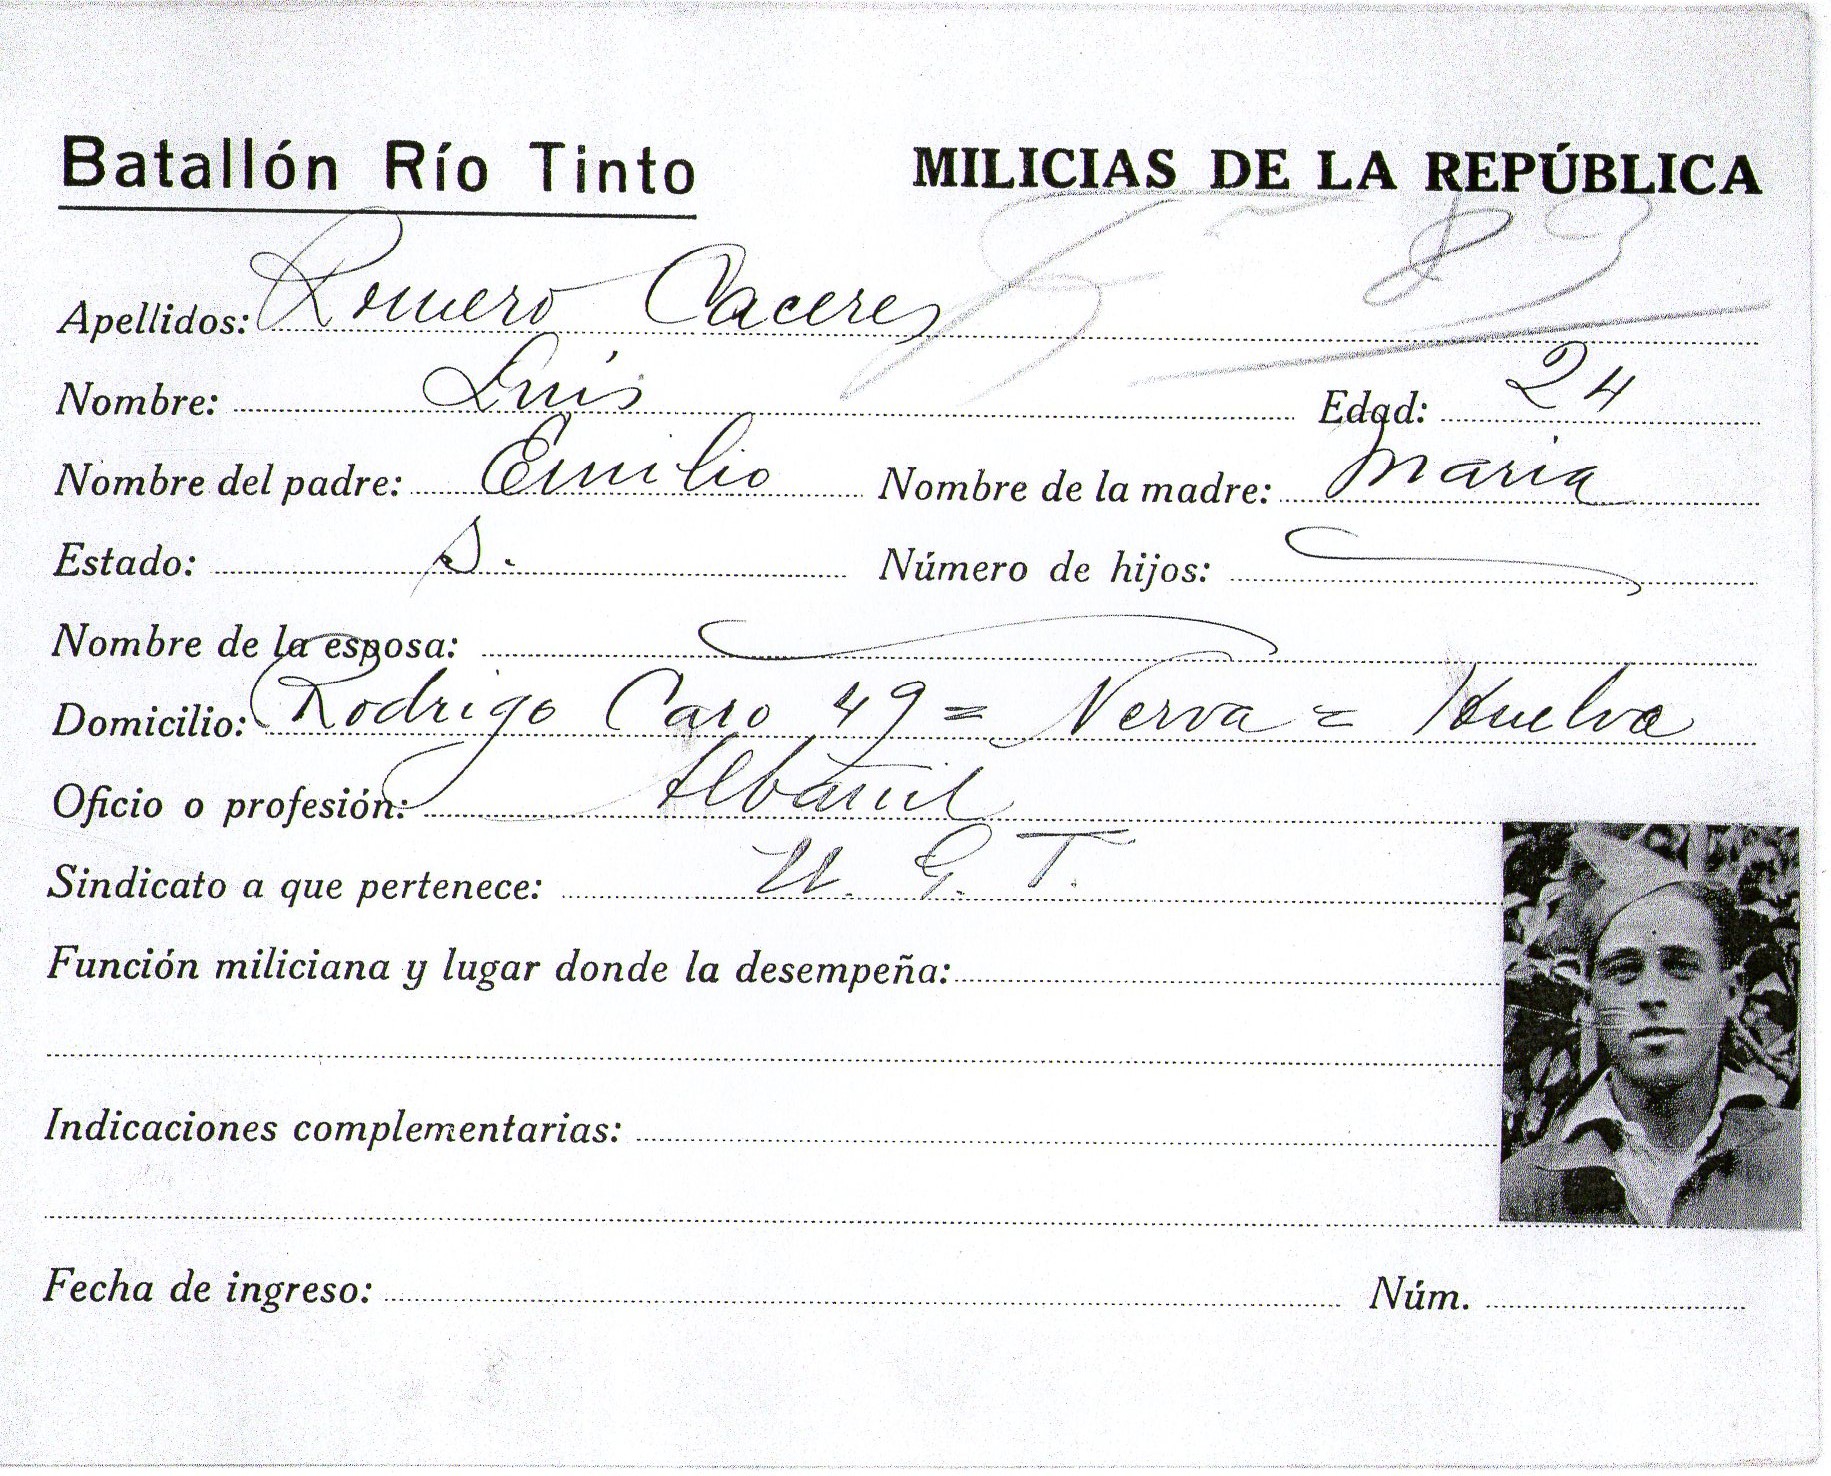 Batallón Río Tinto MILICIAS DE LA REPÚBLICA
Apellidos: Romero Caceres
Nombre: Luis Edad: 24
Nombre del padre: Emilio Nombre de la madre: Maria
Estado: S. Número de hijos:
Nombre de la esposa:
Domicilio: Rodrigo Caro 49 = Nerva = Huelva
Oficio o profesión: Albañil
Sindicato a que pertenece: U. G. T.
Función miliciana y lugar donde la desempeña:
Indicaciones complementarias:
Fecha de ingreso: Núm.